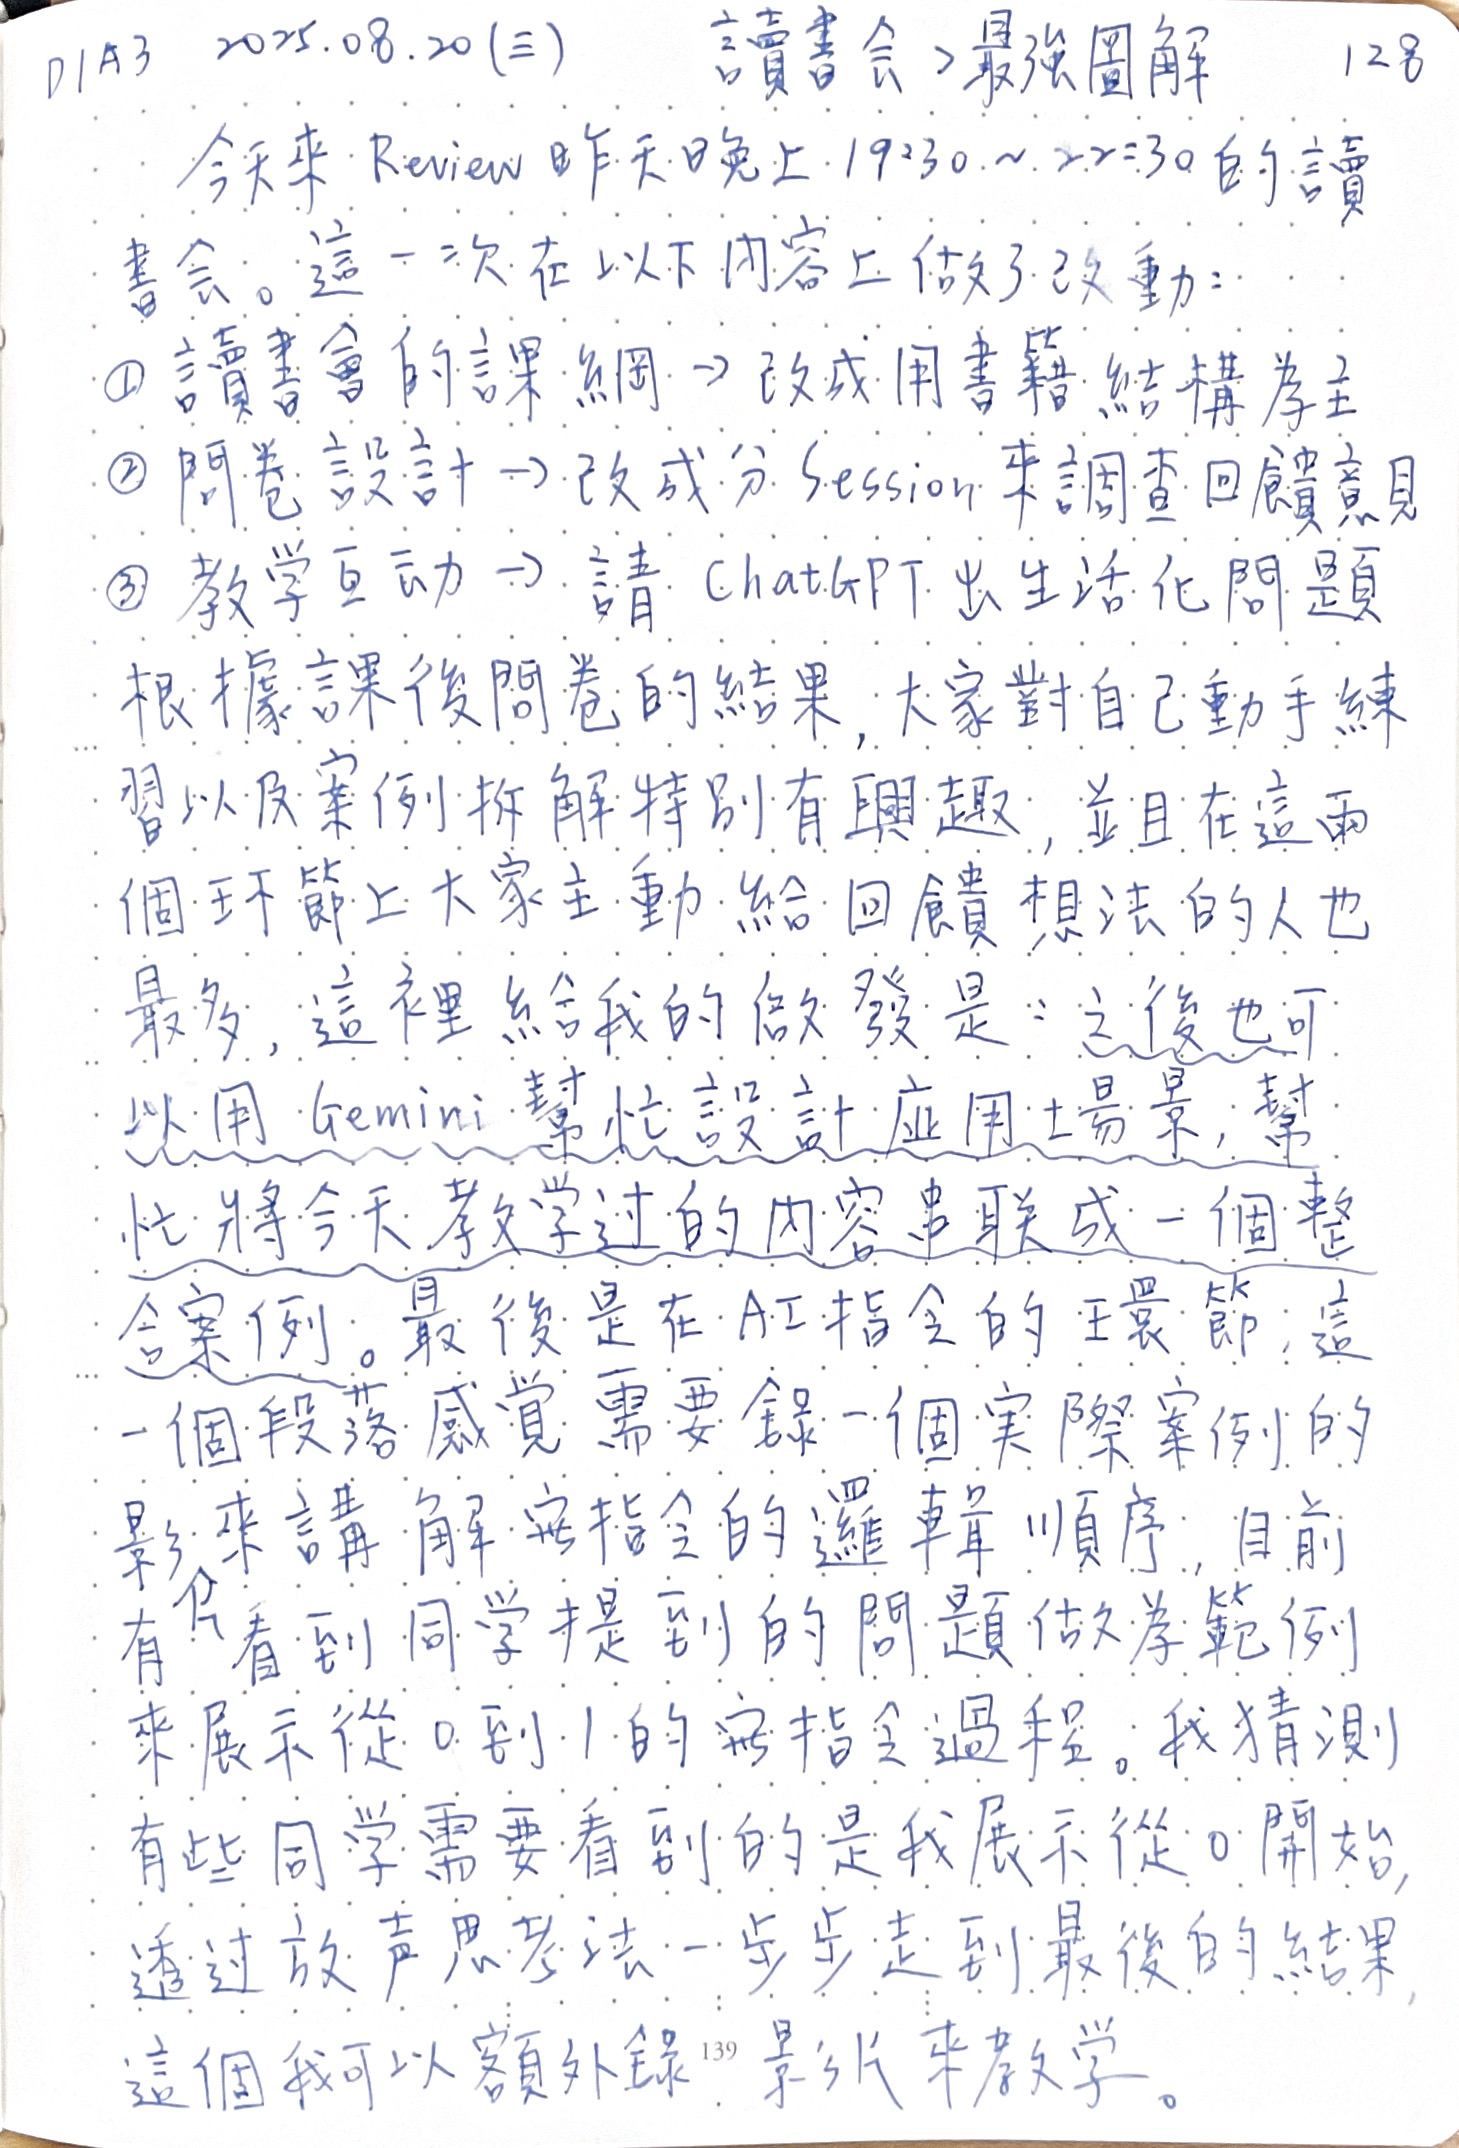 D1A3 2025.08.20(三) 讀書会>最強圖解 128
今天來 Review 昨天晚上 19:30~22:30 的讀
書会。這一次在以下內容上做了改動:
① 讀書會的課綱→改成用書籍結構為主
② 問卷設計→改成分 Session 來調查回饋意見
③ 教学互动→請 ChatGPT 出生活化問題
根據課後問卷的結果,大家對自己動手練
習以及案例拆解特別有興趣,並且在這兩
個环節上大家主動給回饋想法的人也
最多,這裡給我的啟發是:之後也可
以用 Gemini 幫忙設計应用場景,幫
忙將今天教学过的內容串联成一個整
合案例。最後是在 AI 指令的環節,這
一個段落感覚需要錄一個実際案例的
影片來講解寫指令的邏輯順序,目前
有看到同学提到的問題做為範例
來展示從0到1的寫指令過程。我猜測
有些同学需要看到的是我展示從0開始,
透过放声思考法一步步走到最後的結果,
這個我可以額外錄影片來教学。
139